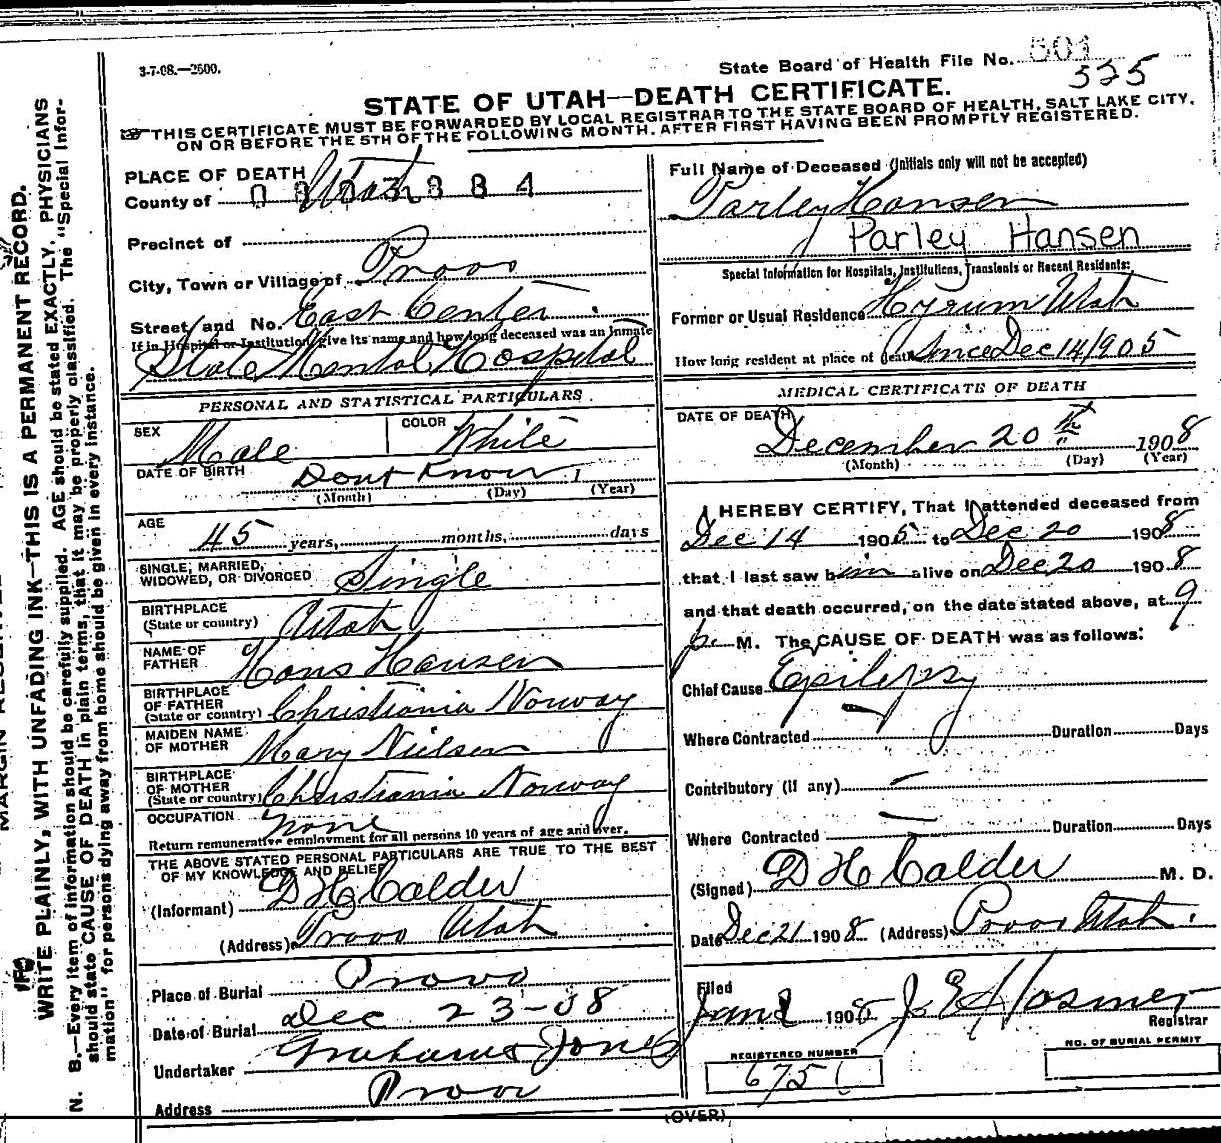 3-7-08.—2500.
State Board of Health File No. 501
525
STATE OF UTAH—DEATH CERTIFICATE.
THIS CERTIFICATE MUST BE FORWARDED BY LOCAL REGISTRAR TO THE STATE BOARD OF HEALTH, SALT LAKE CITY,
ON OR BEFORE THE 5TH OF THE FOLLOWING MONTH, AFTER FIRST HAVING BEEN PROMPTLY REGISTERED.
PLACE OF DEATH
County of Utah
Precinct of
City, Town or Village of Provo
Street and No. East Center
If in Hospital or Institution, give its name and how long deceased was an inmate
State Mental Hospital
PERSONAL AND STATISTICAL PARTICULARS.
SEX Male
COLOR White
DATE OF BIRTH Dont Know
(Month) (Day) (Year)
AGE
45 years, months, days
SINGLE, MARRIED,
WIDOWED, OR DIVORCED Single
BIRTHPLACE
(State or country) Utah
NAME OF
FATHER Hans Hansen
BIRTHPLACE
OF FATHER
(State or country) Christiania Norway
MAIDEN NAME
OF MOTHER Mary Nielsen
BIRTHPLACE
OF MOTHER
(State or country) Christiania Norway
OCCUPATION None
Return remunerative employment for all persons 10 years of age and over.
THE ABOVE STATED PERSONAL PARTICULARS ARE TRUE TO THE BEST
OF MY KNOWLEDGE AND BELIEF
(Informant) D H Calder
(Address) Provo Utah
Place of Burial Provo
Date of Burial Dec 23-08
Undertaker Jones
Address Provo
Full Name of Deceased (Initials only will not be accepted)
Parley Hansen
Parley Hansen
Special Information for Hospitals, Institutions, Transients or Recent Residents:
Former or Usual Residence Hyrum Utah
How long resident at place of death Since Dec 14/905
MEDICAL CERTIFICATE OF DEATH
DATE OF DEATH
December 20th 1908
(Month) (Day) (Year)
I HEREBY CERTIFY, That I attended deceased from
Dec 14 1905 to Dec 20 1908
that I last saw him alive on Dec 20 1908
and that death occurred, on the date stated above, at 9
p. M. The CAUSE OF DEATH was as follows:
Chief Cause Epilepsy
Where Contracted Duration Days
Contributory (if any) —
Where Contracted — Duration Days
(Signed) D H Calder M. D.
Date Dec 21 1908 (Address) Provo Utah.
Filed
Jan 1 1908 J E Hosmer
Registrar
REGISTERED NUMBER
NO. OF BURIAL PERMIT
(OVER)
WRITE PLAINLY, WITH UNFADING INK—THIS IS A PERMANENT RECORD.
N. B.—Every item of information should be carefully supplied. AGE should be stated EXACTLY. PHYSICIANS
should state CAUSE OF DEATH in plain terms, that it may be properly classified. The "Special Infor-
mation" for persons dying away from home should be given in every instance.